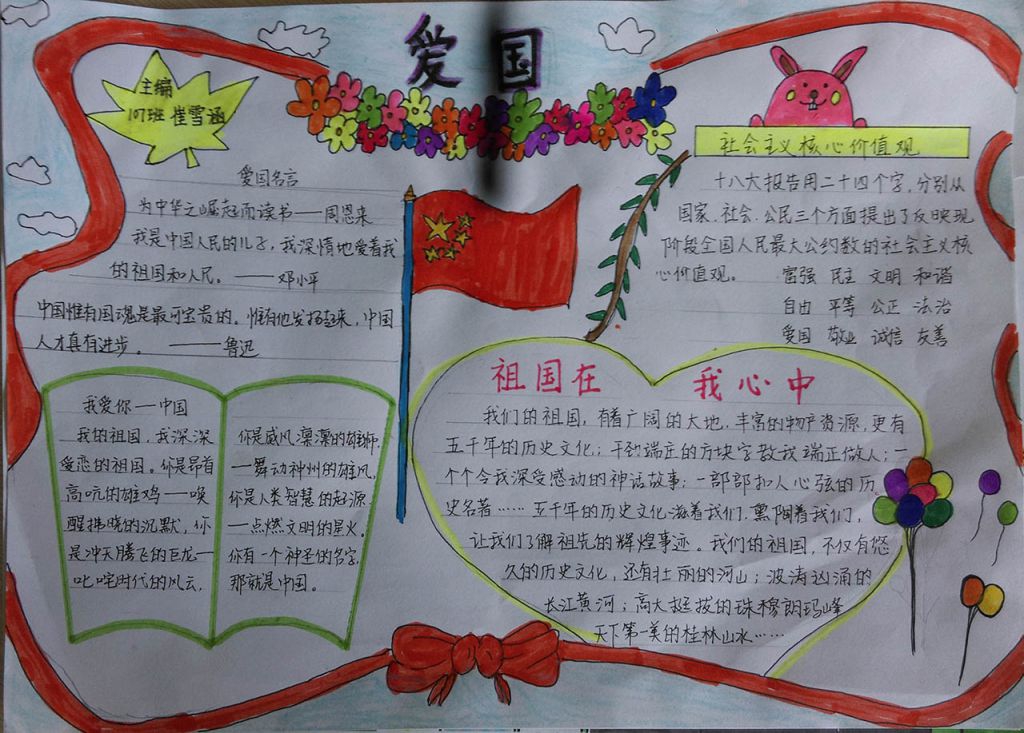 爱国
主编
107班 崔雪涵
爱国名言
为中华之崛起而读书——周恩来
我是中国人民的儿子,我深情地爱着我
的祖国和人民。 ——邓小平
中国惟有国魂是最可宝贵的。惟有他发扬起来,中国
人才真有进步。 ——鲁迅
社会主义核心价值观
十八大报告用二十四个字,分别从
国家、社会、公民三个方面提出了反映现
阶段全国人民最大公约数的社会主义核
心价值观。 富强 民主 文明 和谐
自由 平等 公正 法治
爱国 敬业 诚信 友善
我爱你——中国
我的祖国,我深深
爱恋的祖国。你是昂首
高吭的雄鸡——唤
醒拂晓的沉默,你
是冲天腾飞的巨龙—
叱咤时代的风云,
你是威风凛凛的雄狮
—舞动神州的雄风,
你是人类智慧的起源
—点燃文明的星火。
你有一个神圣的名字,
那就是中国。
祖国在 我心中
我们的祖国,有着广阔的大地,丰富的物产资源,更有
五千年的历史文化;干劲端庄的方块字教我端正做人;一
个个令我深受感动的神话故事;一部部扣人心弦的历
史名著……五千年的历史文化滋着我们,熏陶着我们,
让我们了解祖先的辉煌事迹。我们的祖国,不仅有悠
久的历史文化,还有壮丽的河山;波涛汹涌的
长江黄河;高大挺拔的珠穆朗玛峰
天下第一美的桂林山水……